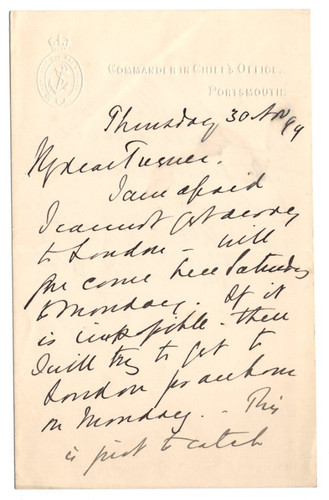 COMMANDER IN CHIEF'S OFFICE,
PORTSMOUTH.
Thursday 30 Nov 99
My dear Turner.
I am afraid
I cannot get away
to London - will
you come here Saturday
to Monday. If it
is impossible - then
I will try to get to
London for an hour
on Monday. - This
is just to catch